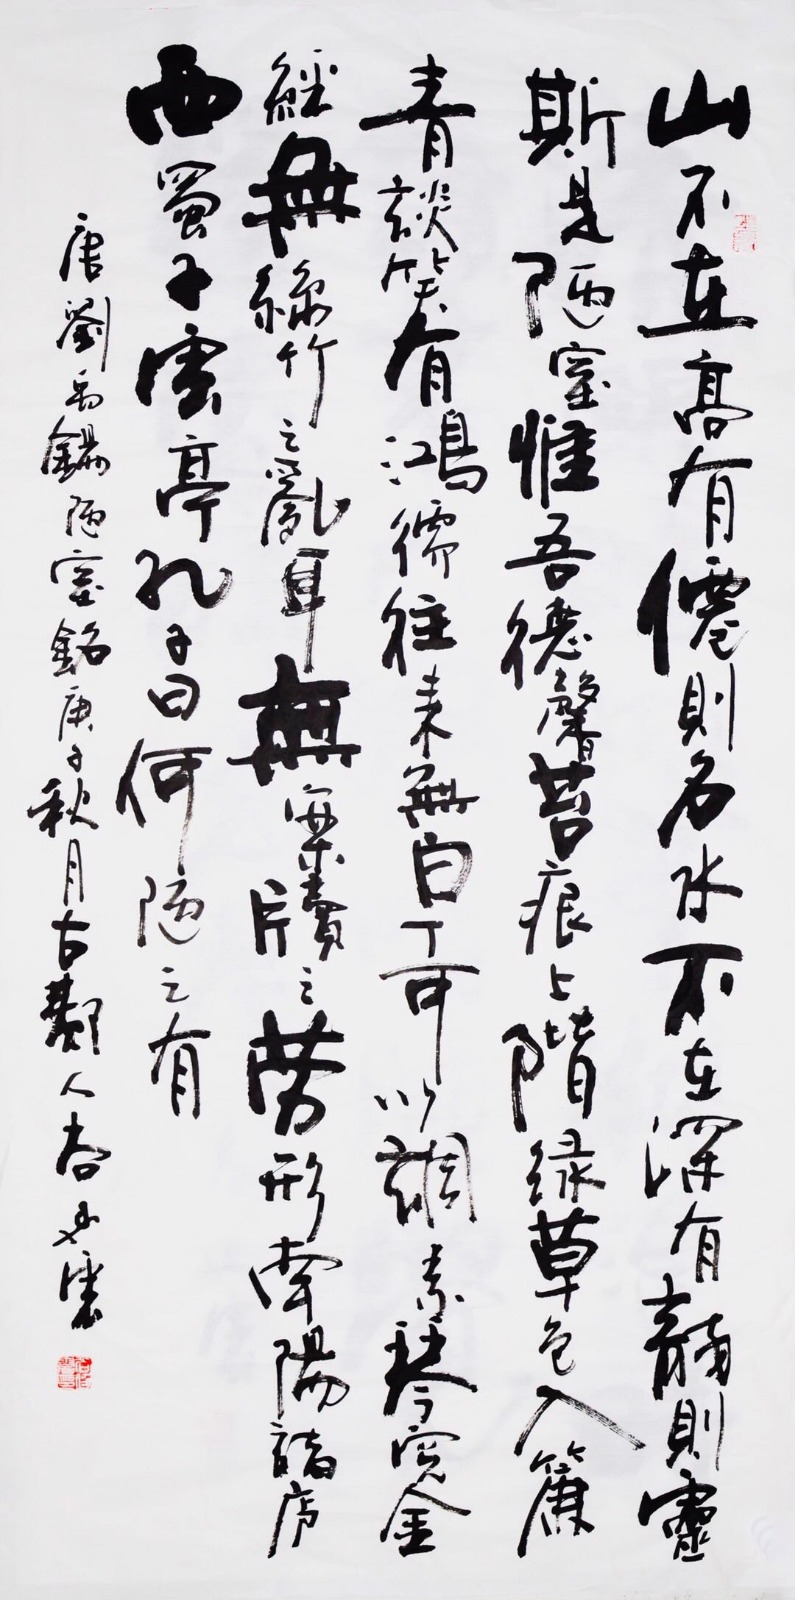 山不在高有僊則名水不在深有龍則靈
斯是陋室惟吾德馨苔痕上階緑草色入簾
青談笑有鴻儒往来無白丁可以調素琴閲金
經無絲竹之亂耳無案牘之勞形南陽諸廬
西蜀子雲亭孔子曰何陋之有
唐劉禹錫陋室銘庚子秋月古鄴人尚雲